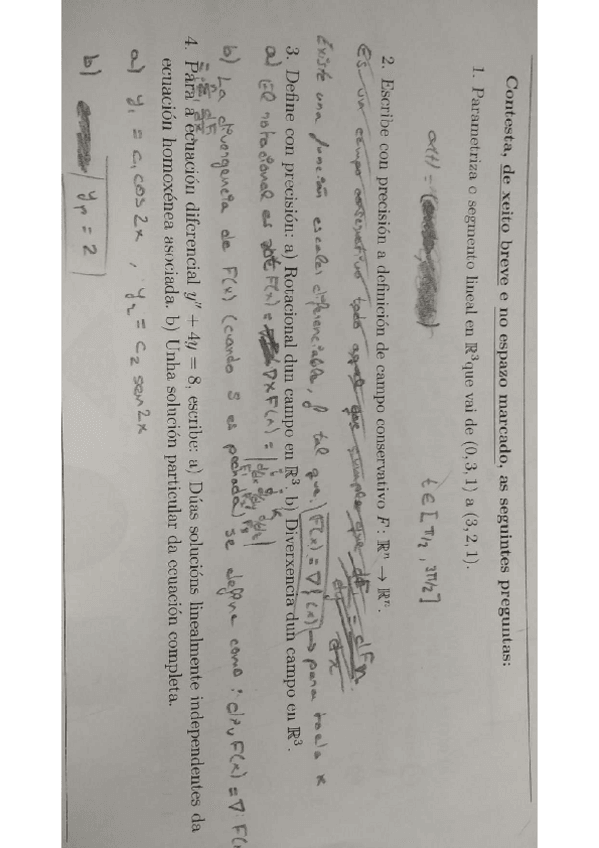 Contesta, de xeito breve e no espazo marcado, as seguintes preguntas:
1. Parametriza o segmento lineal en ℝ³ que vai de (0, 3, 1) a (3, 2, 1).
α(t) = ( t ∈ [π/2, 3π/2]
2. Escribe con precisión a definición de campo conservativo F : ℝⁿ → ℝⁿ.
Es un campo conservativo todo aquel que cumpla que
Existe una función escalar diferenciable, f tal que. F(x) = ∇f(x) → para todo x
3. Define con precisión: a) Rotacional dun campo en ℝ³. b) Diverxencia dun campo en ℝ³.
a) El rotacional es rot F(x) = ∇×F(x) =
b) La divergencia de F(x) (cuando S es pechada) se define como: div F(x) = ∇·F(x
4. Para a ecuación diferencial y'' + 4y = 8, escribe: a) Dúas solucións linealmente independentes da
ecuación homoxénea asociada. b) Unha solución particular da ecuación completa.
a) y₁ = c₁ cos 2x , y₂ = c₂ sen 2x
b) yₚ = 2